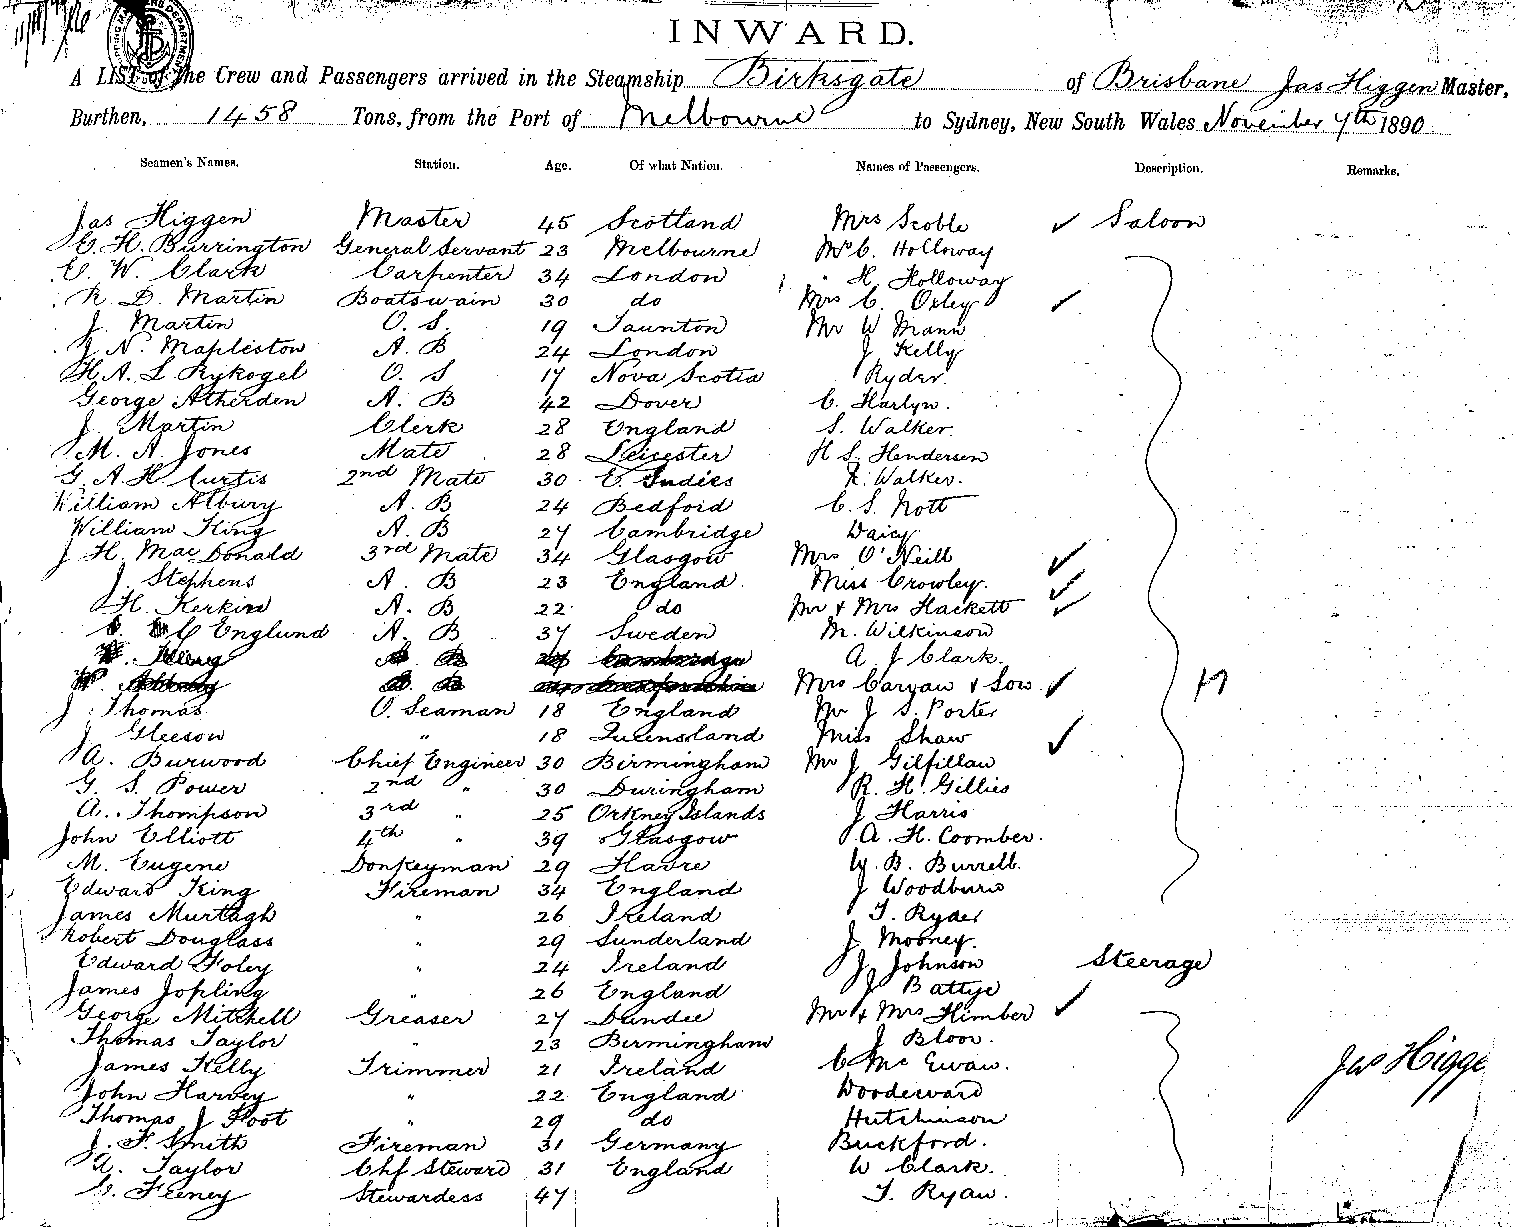 INWARD.
A LIST of the Crew and Passengers arrived in the Steamship Birksgate of Brisbane Jas Higgen Master,
Burthen, 1458 Tons, from the Port of Melbourne to Sydney, New South Wales November 7th 1890
Seamen's Names. Station. Age. Of what Nation. Names of Passengers. Description. Remarks.
Jas Higgen Master 45 Scotland Mrs Scoble ✓ Saloon
E. H. Burrington General Servant 23 Melbourne Mr C. Holloway
C. W. Clark Carpenter 34 London " H. Holloway
R. D. Martin Boatswain 30 do Mrs C. Oxley ✓
J. Martin O. S. 19 Taunton Mr W Mann
J. N. Mapleston A. B 24 London J Kelly
H. A. L Rykogel O. S 17 Nova Scotia Ryder.
George Atherden A. B 42 Dover C. Harlyn.
J. Martin Clerk 28 England S. Walker.
M. A. Jones Mate 28 Leicester H S. Hendersen
G. A. H. Curtis 2nd Mate 30 E. Indies R. Walker.
William Albury A. B 24 Bedford C. S. Nott
William King A. B 27 Cambridge Daicy
J H. Mac Donald 3rd Mate 34 Glasgow Mrs O'Neill ✓
J. Stephens A. B 23 England. Miss Crowley. ✓
H. Kerkin A. B 22 do Mr & Mrs Hackett ✓
C Englund A. B 37 Sweden M. Wilkinson
A J Clark.
Mrs Caryan & Son ✓ 47
J Thomas O. Seaman 18 England Mr J S. Porter
J. Gleeson " 18 Queensland Miss Shaw ✓
A. Burwood Chief Engineer 30 Birmingham Mr J Gilfillan
G. S. Power 2nd " 30 Duringham R. H. Gillies
A. Thompson 3rd " 25 Orkney Islands J Harris
John Elliott 4th " 39 Glasgow A. H. Coomber.
M. Eugene Donkeyman 29 Havre W. B. Burrell.
Edward King Fireman 34 England J Woodburn
James Murtagh " 26 Ireland T. Ryder
Robert Douglass " 29 Sunderland J. Mooney.
Edward Foley " 24 Ireland J. Johnson Steerage
James Jopling " 26 England J Battye
George Mitchell Greaser 27 Dundee Mr & Mrs Himber ✓
Thomas Taylor " 23 Birmingham J Bloor.
James Kelly Trimmer 21 Ireland C Mc Ewan. Jas Higge
John Harvey " 22 England Woodeward
Thomas J Foot " 29 do Hutchinson
J. F. Smith Fireman 31 Germany Buckford.
A. Taylor Chf Steward 31 England W Clark.
C. Feeney Stewardess 47 T. Ryan.